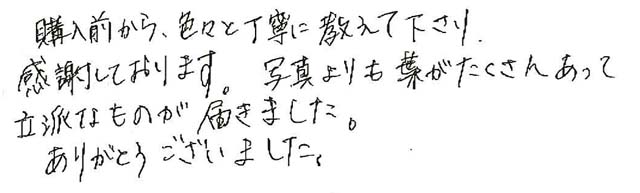 購入前から、色々と丁寧に教えて下さり、
感謝しております。写真よりも葉がたくさんあって
立派なものが届きました。
ありがとうございました。